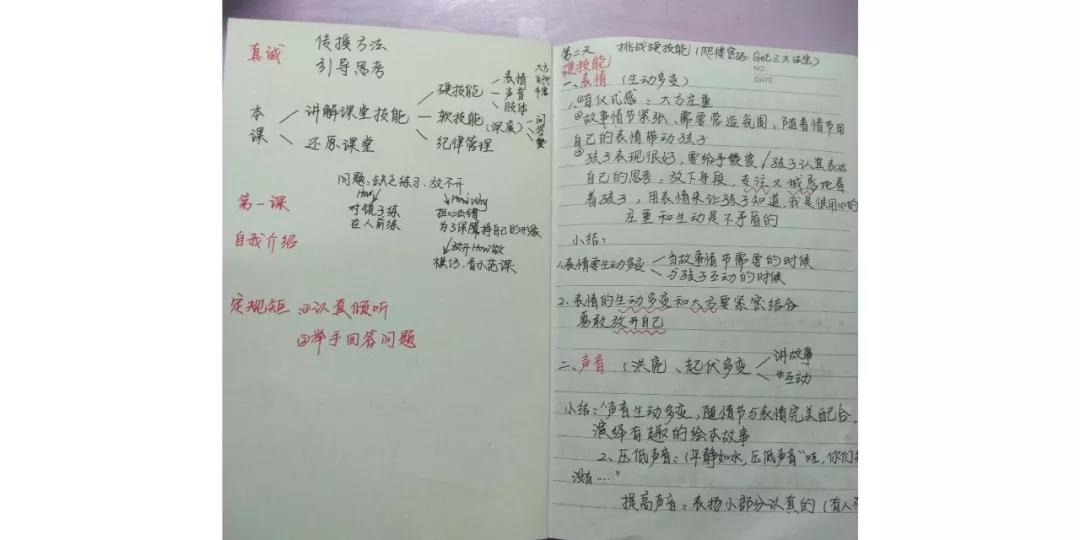 真诚
传授方法
引导思考
本课
讲解课堂技能
还原课堂
硬技能
表情
声音
肢体
大方
软技能
(深度)
问
答
纪律管理
问题:缺乏练习、放不开
How
对镜子练
在人前练
How why
担心出错
为了保障自己的形象
放开How做
模仿、看示范课
第一课
自我介绍
定规矩 ①认真倾听
②举手回答问题
第二天 挑战硬技能(爬楼密码:Get三大法宝)
NO.
DATE
硬技能
一、表情 (生动多变)
仪式感:大方庄重
②故事情节紧张、需要营造氛围,随着情节用
自己的表情带动孩子
③孩子表现很好,要给予赞赏/孩子认真表达
自己的思考:放下身段,专注又诚恳地看
着孩子,用表情来让孩子知道,我是很用心的
庄重和生动是不矛盾的
小结:
1.表情要生动多变
当故事情节需要的时候
与孩子互动的时候
2.表情的生动多变和大方要紧密结合
勇敢放开自己
二、声音 (洪亮)、起伏多变
讲故事
互动
小结:声音生动多变,随情节与表情完美配合,
演绎有趣的绘本故事
2、压低声音:(平静如水,压低声音"哇,你们
没有……"
提高声音:表扬小部分认真的(有人